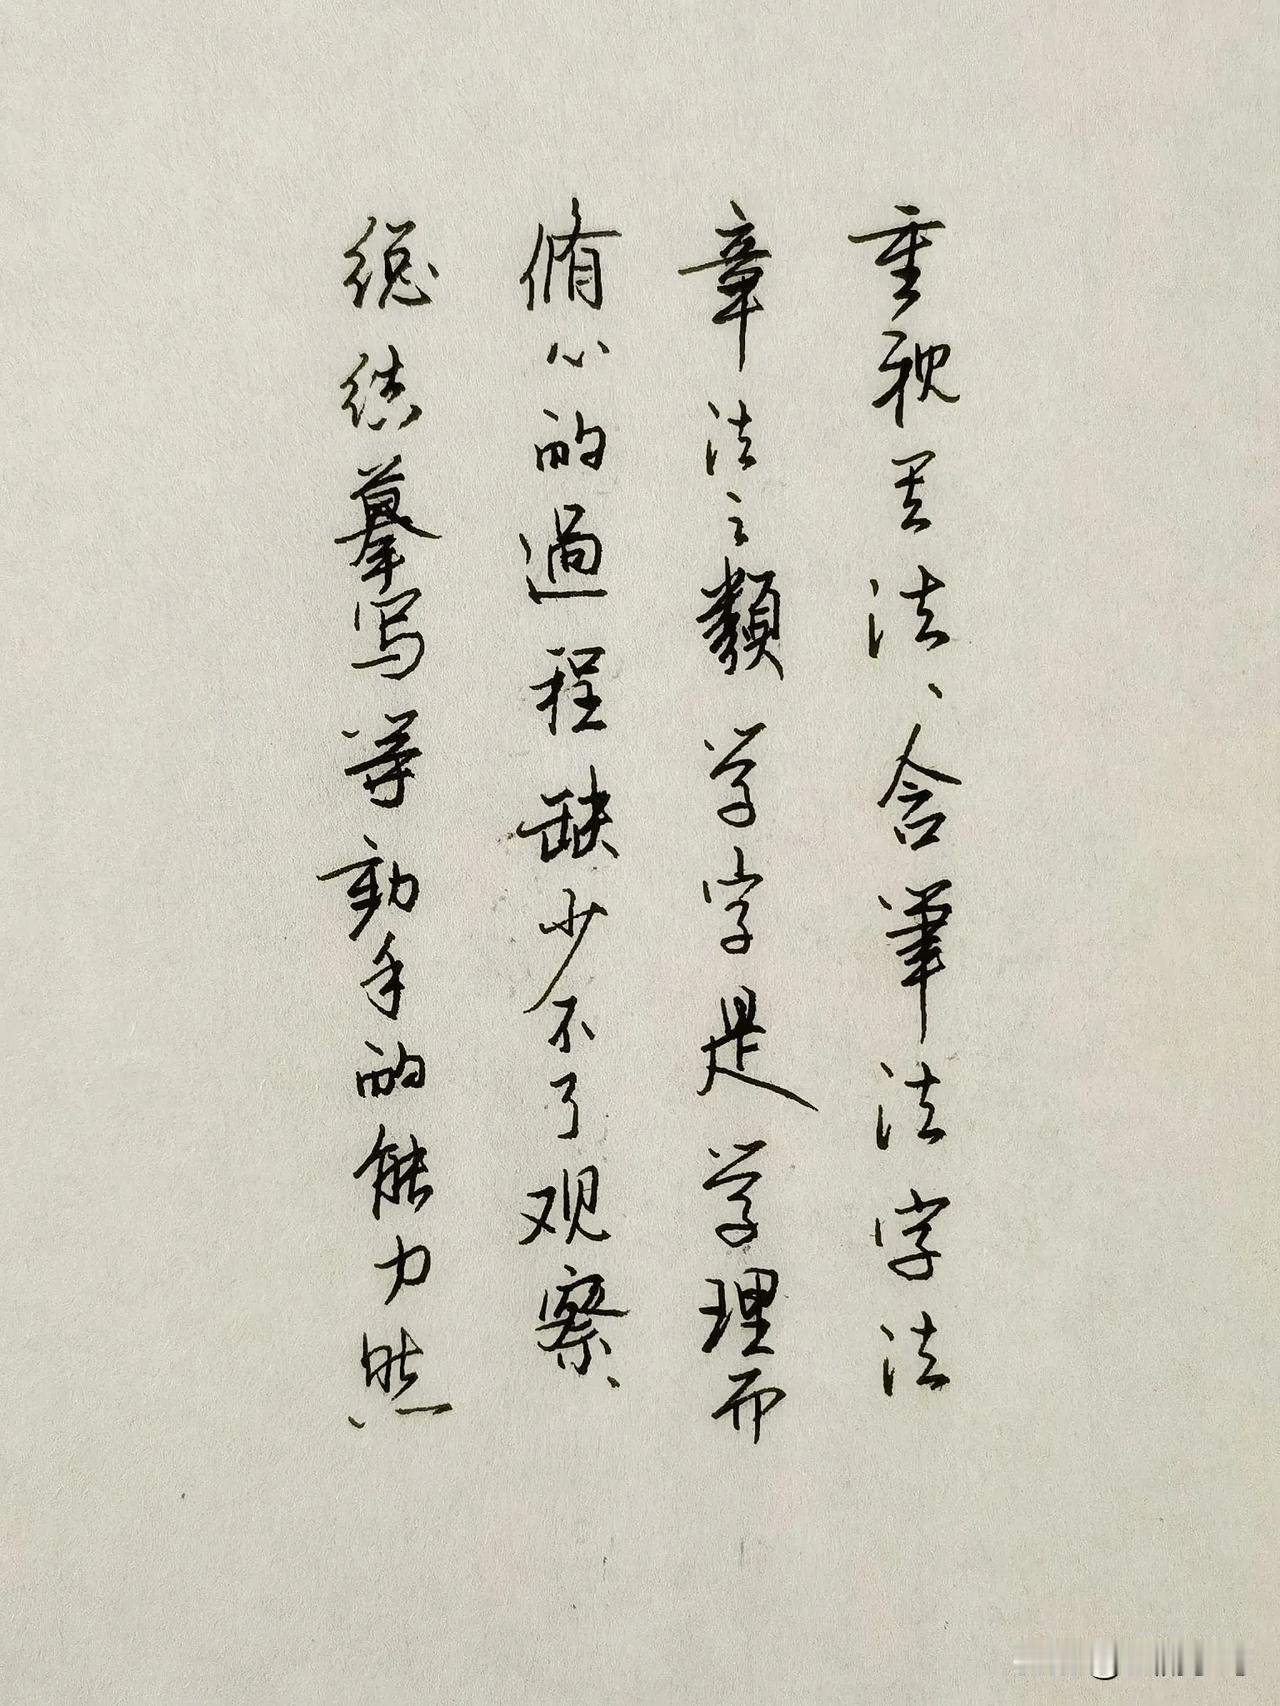 重视其法、含筆法字法
章法之類学字是学理而
脩心的過程缺少不了观察、
總结摹写等動手的能力然